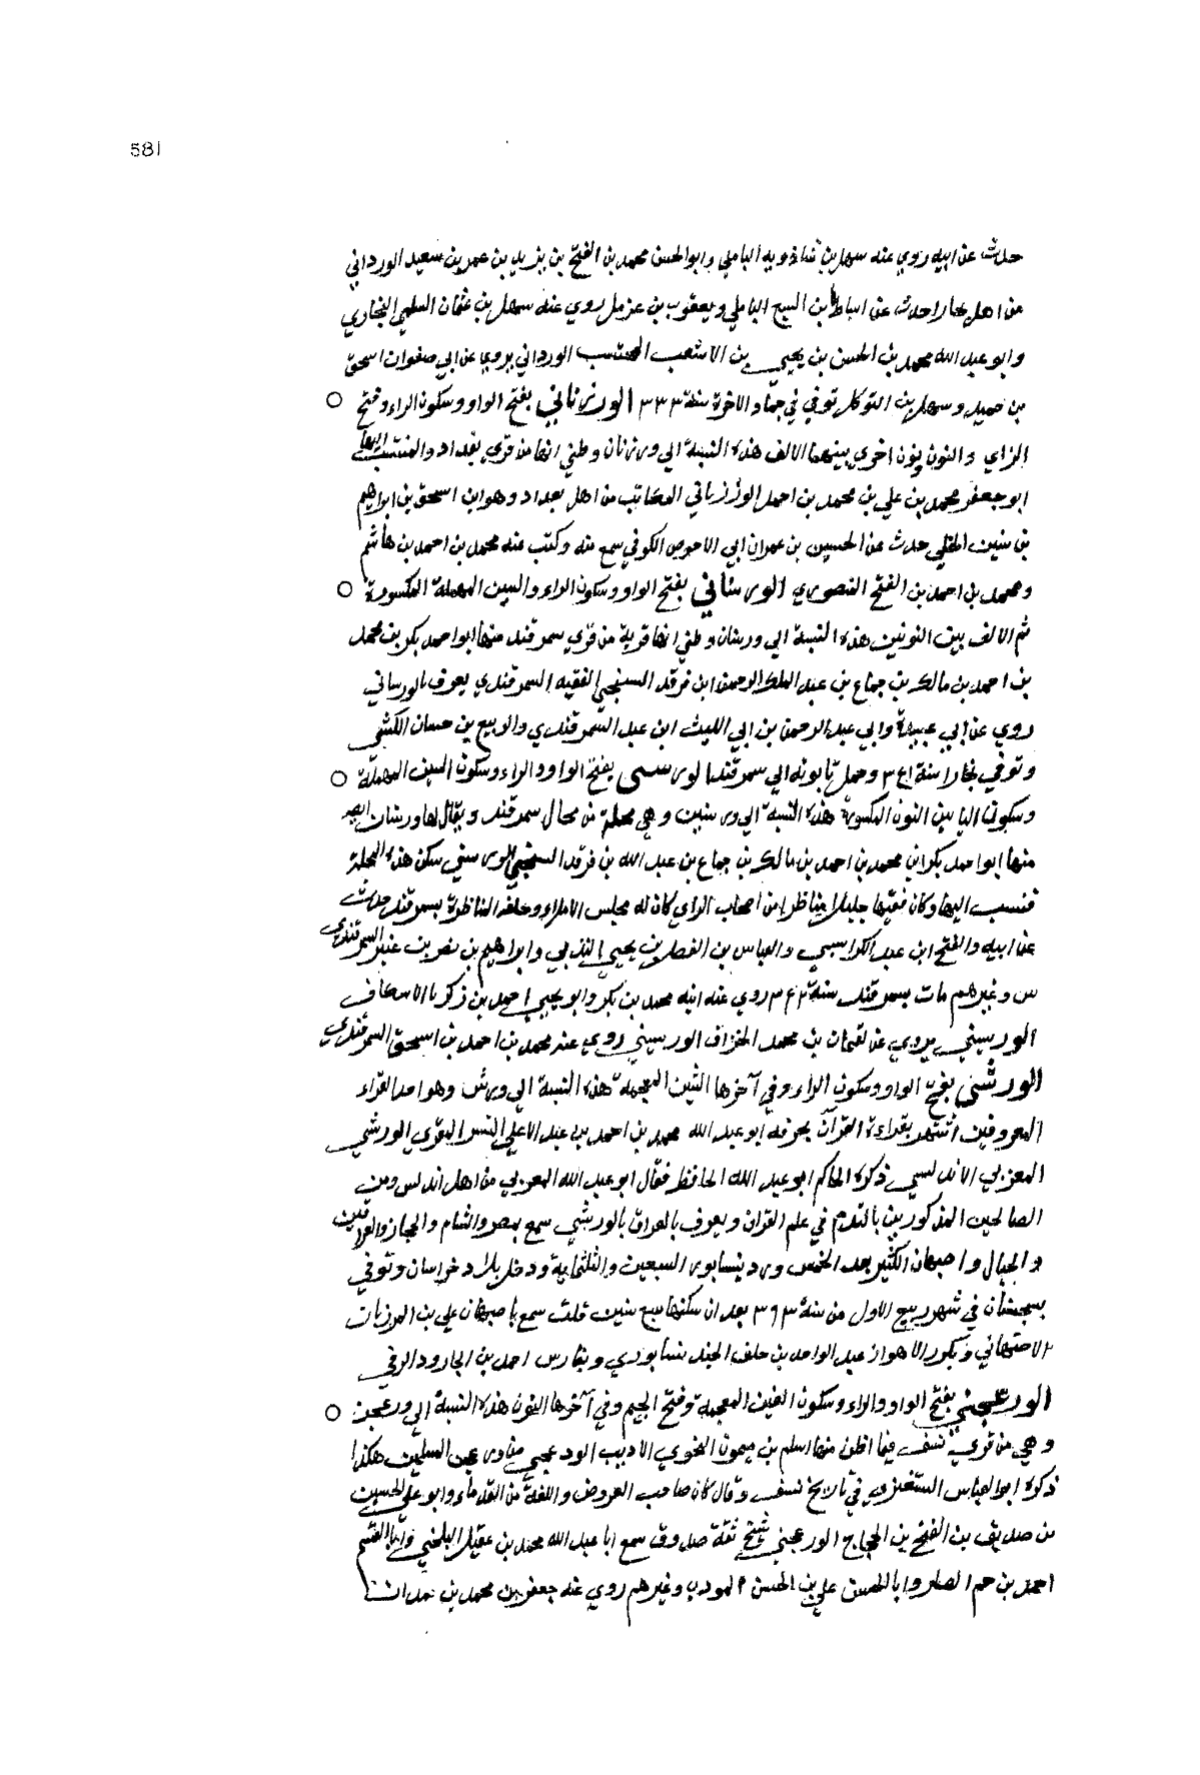 581
حدث عن ابيه روي عنه سهل بن شاذويه الباملي وابو الحسن محمد بن الفتح بن يزيد بن عمر بن سعيد الورداني
من اهل بخارا حدث عن اسباط ابن اليسع الباملي ويعقوب بن عزمل روي عنه سهل بن عثمان السلمي البخاري
وابو عبد الله محمد بن الحسن بن يحيي بن الاشعب المحتسب الورداني يروي عن ابي صفوان اسحق
بن حميد وسهل بن المتوكل توفي في جماد الاخرة سنة ٣٣٣ الورزناني بفتح الواو وسكون الراء وفتح
الزاي والنون بنون اخري بينهما الالف هذه النسبة الي ورزنان وظني انها من قري بغداد والمنتسب اليها
ابو جعفر محمد بن علي بن محمد بن احمد الورزناني الكاتب من اهل بغداد وهو ابن اسحق بن ابراهيم
بن سنين الختلي حدث عن الحسين بن عمران ابي الاحوص الكوفي سمع منه وكتب عنه محمد بن احمد بن هاشم
ومحمد بن احمد بن الفتح المنصوري الورسناني بفتح الواو وسكون الراء والسين المهملة المكسورة
ثم الالف بين النونين هذه النسبة الي ورسنان وظني انها قرية من قري سمرقند منها ابو احمد بكر بن محمد
بن احمد بن مالك بن جماع بن عبد الرحمن ابن فرقد السنجي الفقيه السمرقندي يعرف بالورسناني
روي عن ابي عبيدة وابي عبد الرحمن بن ابي الليث ابن عبد السمرقندي والربيع بن حسان الكشي
وتوفي بخارا سنة ٣٤١ وحمل تابوته الي سمرقند الورسنيني بفتح الواو والراء وسكون السين المهملة
وسكون اليا بين النون المكسورة هذه النسبة الي ورسنين وهي محلة من محال سمرقند ويقال لها ورسنان
منها ابو احمد بكر ابن محمد بن احمد بن مالك بن جماع بن عبد الله بن فرقد السنجي الورسنيني سكن هذه المحلة
فنسب اليها وكان فقيها جليلا مناظرا من اصحاب الراي كان له مجلس الاملاء وحلقة المناظرة بسمرقند حدث
عن ابيه والفتح ابن عبد الكرابيسي والعباس بن الفضل بن يحيي الندبي وابراهيم بن نصر بن عنبر السمرقندي
وغيرهم مات بسمرقند سنة ٣٤٢ روي عنه ابنه محمد بن بكر وابو يحيي احمد بن زكريا
الورسيني يروي عن لقمان بن محمد الخزاف الورسيني روي عنه محمد بن احمد بن اسحق السمرقندي
الورشي بفتح الواو وسكون الراء وفي آخرها الشين المعجمة هذه النسبة الي ورش وهو احد القراء
المعروفين اشتهر بقراءة القرآن بحرفه ابو عبد الله محمد بن احمد بن عبد الاعلي المقري الورشي
المغربي الاندلسي ذكره الحاكم ابو عبد الله الحافظ فقال ابو عبد الله المغربي من اهل اندلس ومن
الصالحين المذكورين بالتقدم في علم القران ويعرف بالعراق بالورشي سمع بمصر والشام والحجاز والعراقين
والجبال واصبهان الكثير بعد الخمس ورد نيسابور السبعين والثلثماية ودخل بلاد خراسان وتوفي
بسجستان في شهر ربيع الاول من سنة ٣٩٣ بعد ان سكنها سبع سنين قلت سمع باصبهان علي بن المرزبان
الاصبهاني وبكور الاهواز عبد الواحد بن خلف الجنديسابوري وبفارس احمد بن الجارود الرقي
الورعجني بفتح الواو والراء وسكون الغين المعجمة وفتح الجيم وفي آخرها النون هذه النسبة الي ورعجن
وهي من قري نسف فيما اظن منها اسلم بن ميمون النحوي الاديب الورعجني من ورعجن المسلمين هكذا
ذكره ابو العباس المستغفري في تاريخ نسف وقال كان صاحب العروض واللغة من القدماء وابو علي الحسين
بن صديق بن الفتح بن الحجاج الورعجني شيخ ثقة صدوق سمع ابا عبد الله محمد بن عقيل البلخي وابا القسم
احمد بن حم الصفار وابا الحسن علي بن الحسن المودب وغيرهم روي عنه جعفر بن محمد بن حمدان